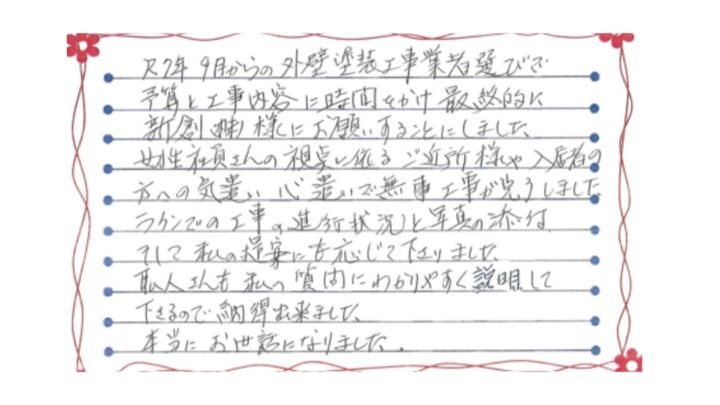 R7年9月からの外壁塗装工事業者選びで
予算と工事内容に時間をかけ最終的に
新創(株)様にお願いすることにしました。
女性社員さんの視点に依るご近所様や入居者の
方への気遣い心遣いで無事工事が完了しました
ラインでの工事の進行状況と写真の添付
そして私の提案にも応じて下さりました。
職人さんも私の質問にわかりやすく説明して
下さるので納得出来ました。
本当にお世話になりました。